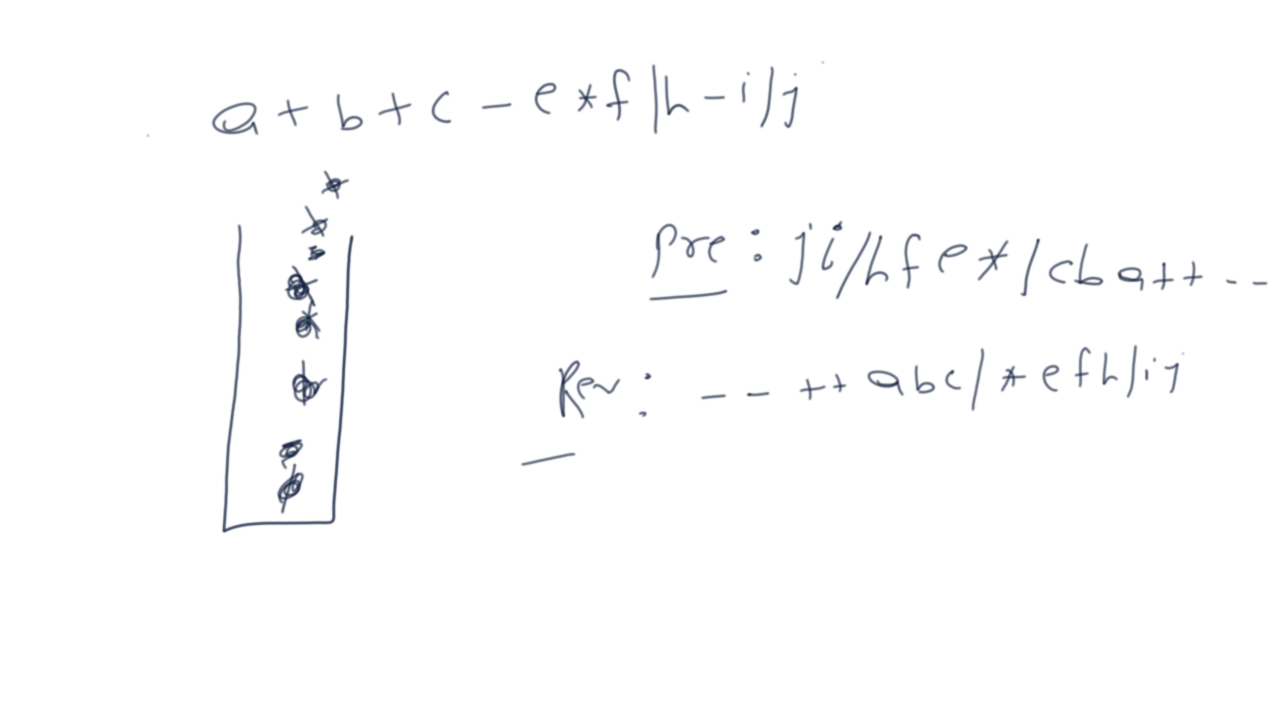 a + b + c - e * f / h - i / j
pre : j i / h f e * / c b a + + - -
Rev : - - + + a b c / * e f h / i j